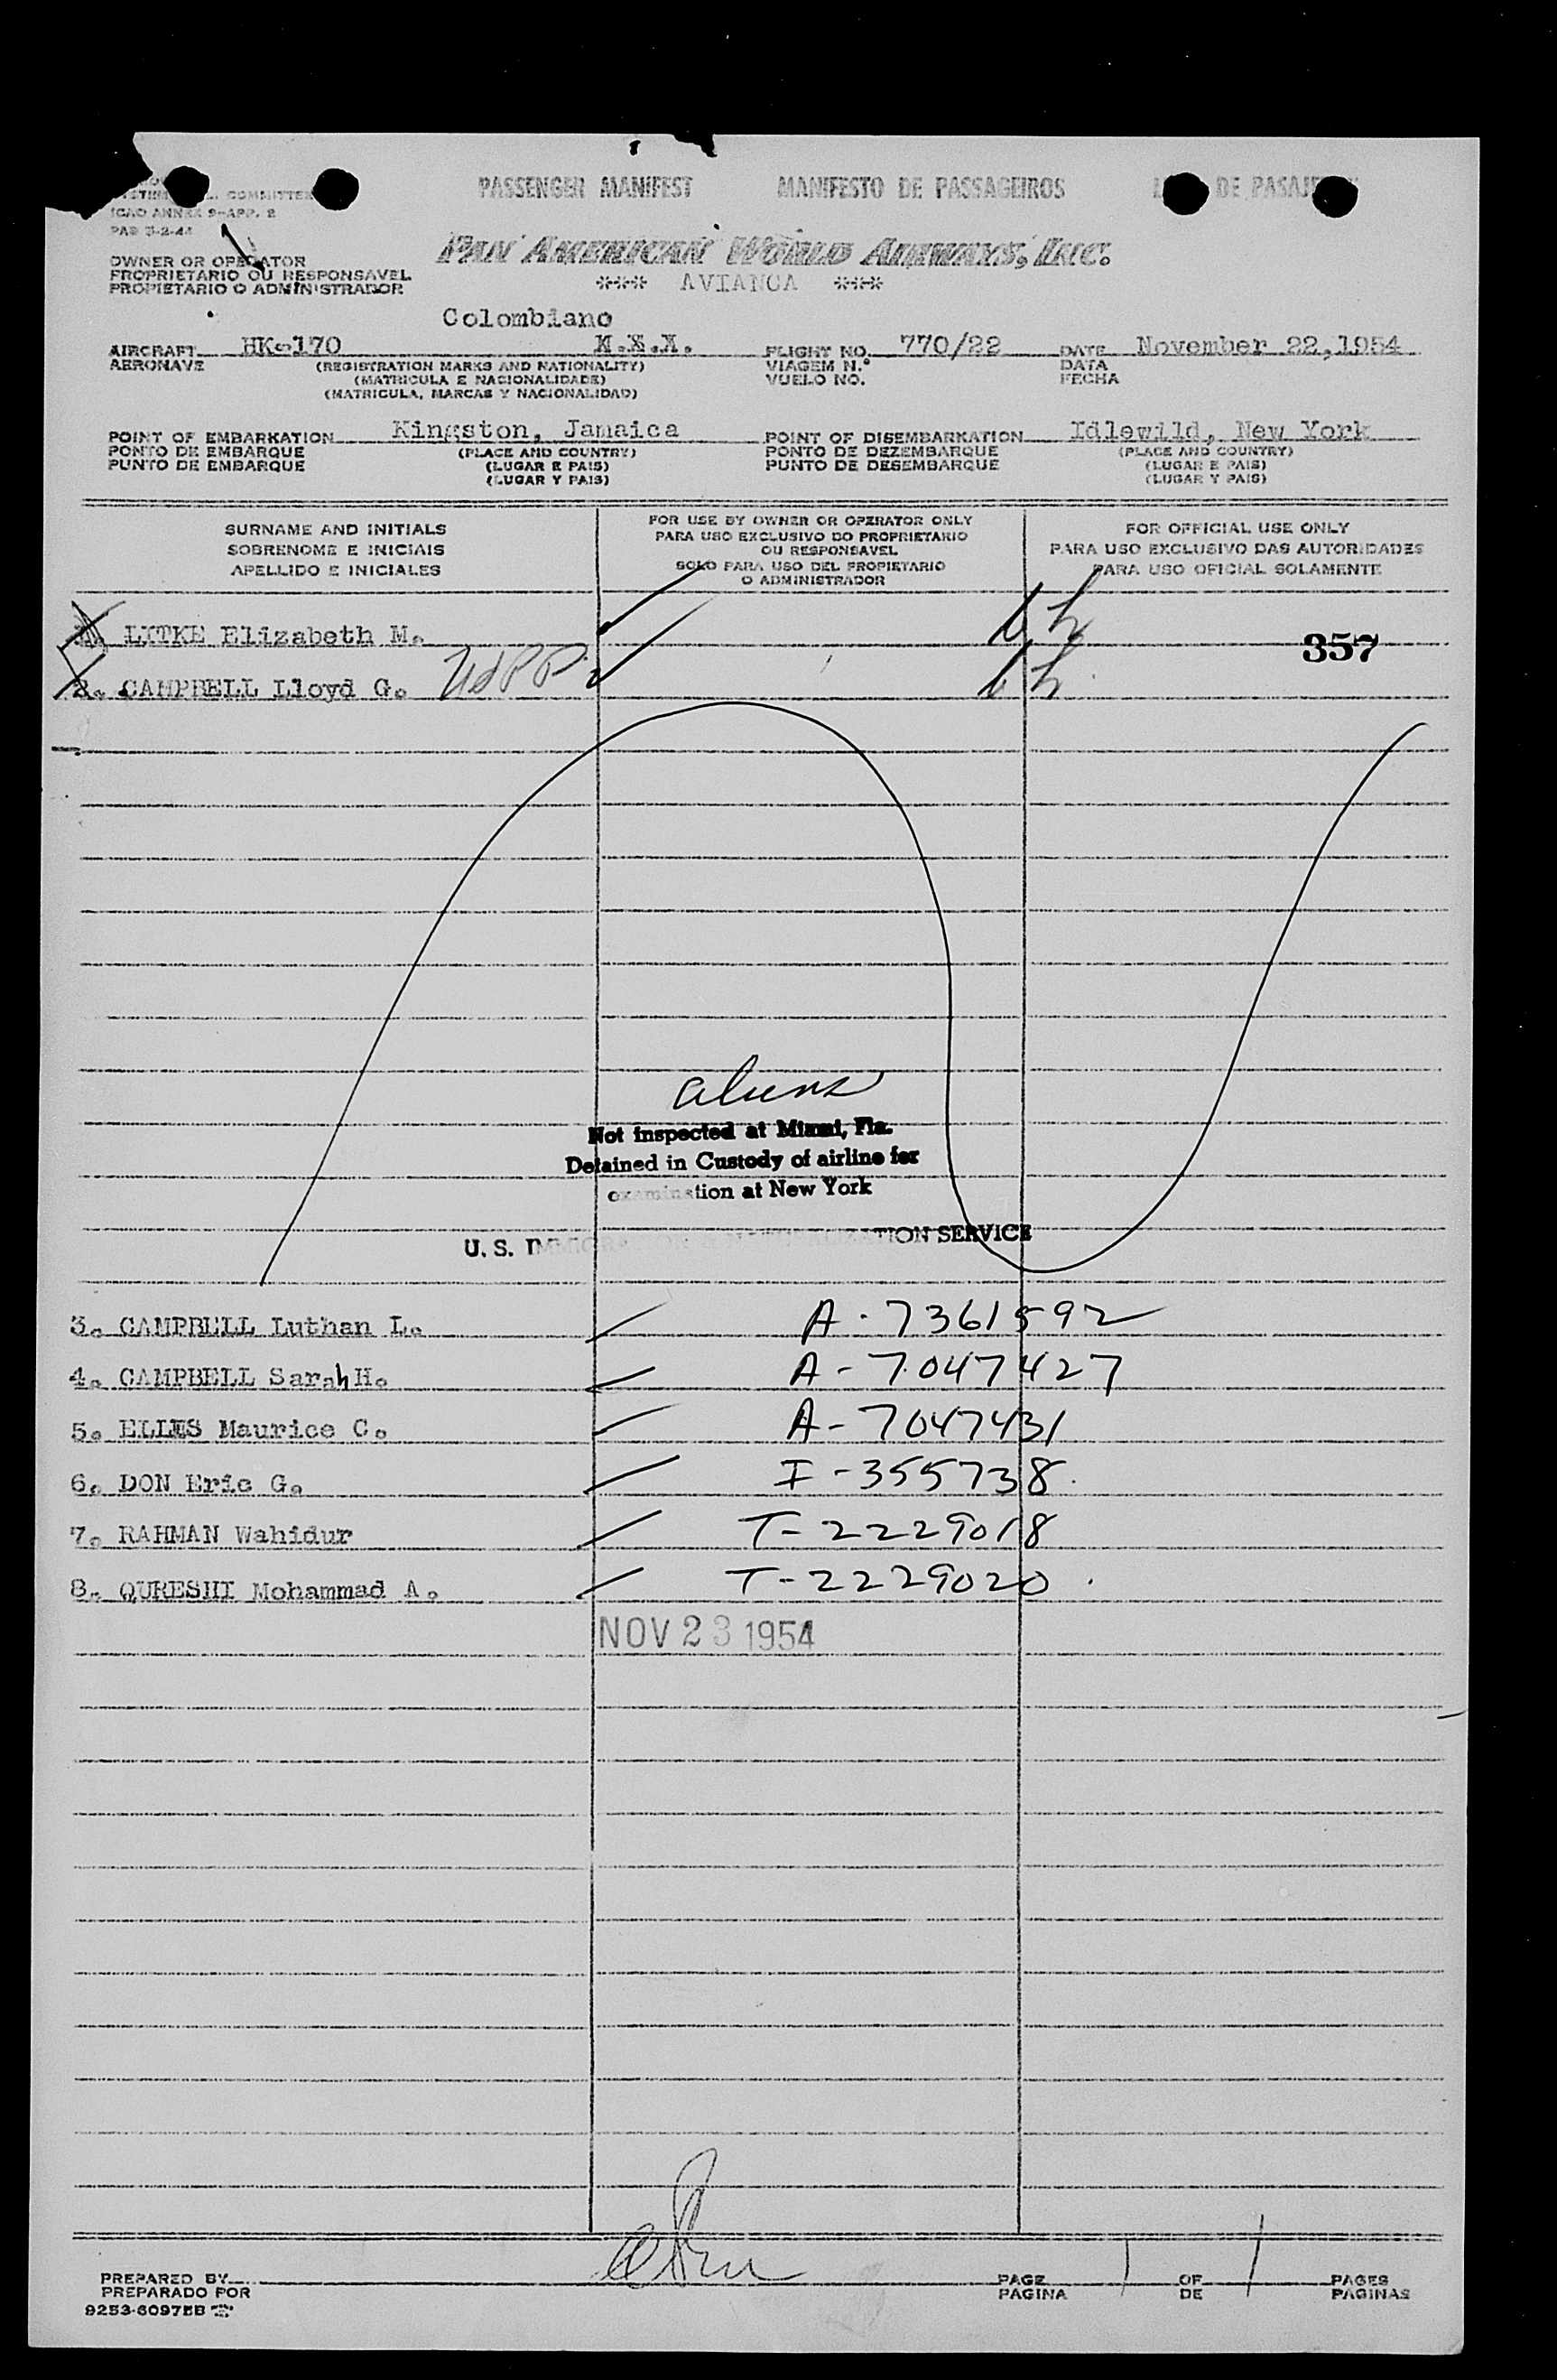 PASSENGER MANIFEST MANIFESTO DE PASSAGEIROS DE PASAJEROS
ICAO ANNEX 9-APP. 2
PAN AMERICAN WORLD AIRWAYS, INC.
OWNER OR OPERATOR
PROPRIETARIO OU RESPONSAVEL
PROPIETARIO O ADMINISTRADOR
*** AVIANCA ***
Colombiano
AIRCRAFT HK-170 FLIGHT NO. 770/22 DATE November 22,1954
AERONAVE (REGISTRATION MARKS AND NATIONALITY) VIAGEM N.º DATA
(MATRICULA E NACIONALIDADE) VUELO NO. FECHA
(MATRICULA, MARCAS Y NACIONALIDAD)
POINT OF EMBARKATION Kingston, Jamaica POINT OF DISEMBARKATION Idlewild, New York
PONTO DE EMBARQUE (PLACE AND COUNTRY) PONTO DE DEZEMBARQUE (PLACE AND COUNTRY)
PUNTO DE EMBARQUE (LUGAR E PAIS) PUNTO DE DESEMBARQUE (LUGAR E PAIS)
(LUGAR Y PAIS) (LUGAR Y PAIS)
SURNAME AND INITIALS
SOBRENOME E INICIAIS
APELLIDO E INICIALES
FOR USE BY OWNER OR OPERATOR ONLY
PARA USO EXCLUSIVO DO PROPRIETARIO
OU RESPONSAVEL
SOLO PARA USO DEL PROPIETARIO
O ADMINISTRADOR
FOR OFFICIAL USE ONLY
PARA USO EXCLUSIVO DAS AUTORIDADES
PARA USO OFICIAL SOLAMENTE
LYTKE Elizabeth M.
357
2. CAMPBELL Lloyd G.
aliens
Not inspected at Miami, Fla.
Detained in Custody of airline for
examination at New York
U. S. IMMIGRATION & NATURALIZATION SERVICE
3. CAMPBELL Luthan L. A-7361592
4. CAMPBELL Sarah H. A-7047427
5. ELLES Maurice C. A-7047431
6. DON Eric G. I-355738
7. RAHMAN Wahidur T-2229018
8. QURESHI Mohammad A. T-2229020
NOV 23 1954
PREPARED BY PAGE 1 OF 1 PAGES
PREPARADO POR PAGINA DE PAGINAS